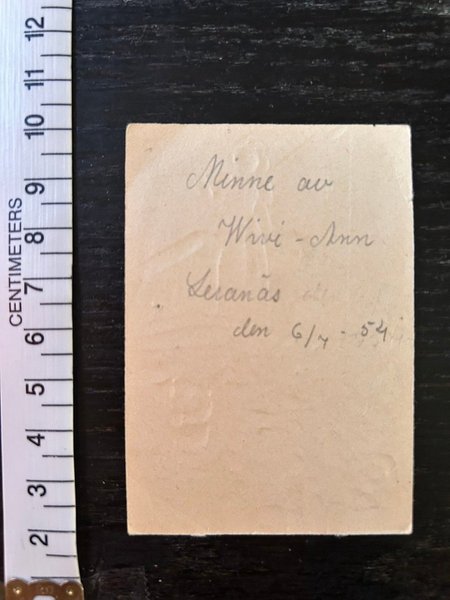 Minne av
Wivi-Ann
den 6/7 - 54
CENTIMETERS
12
11
10
9
8
7
6
5
4
3
2